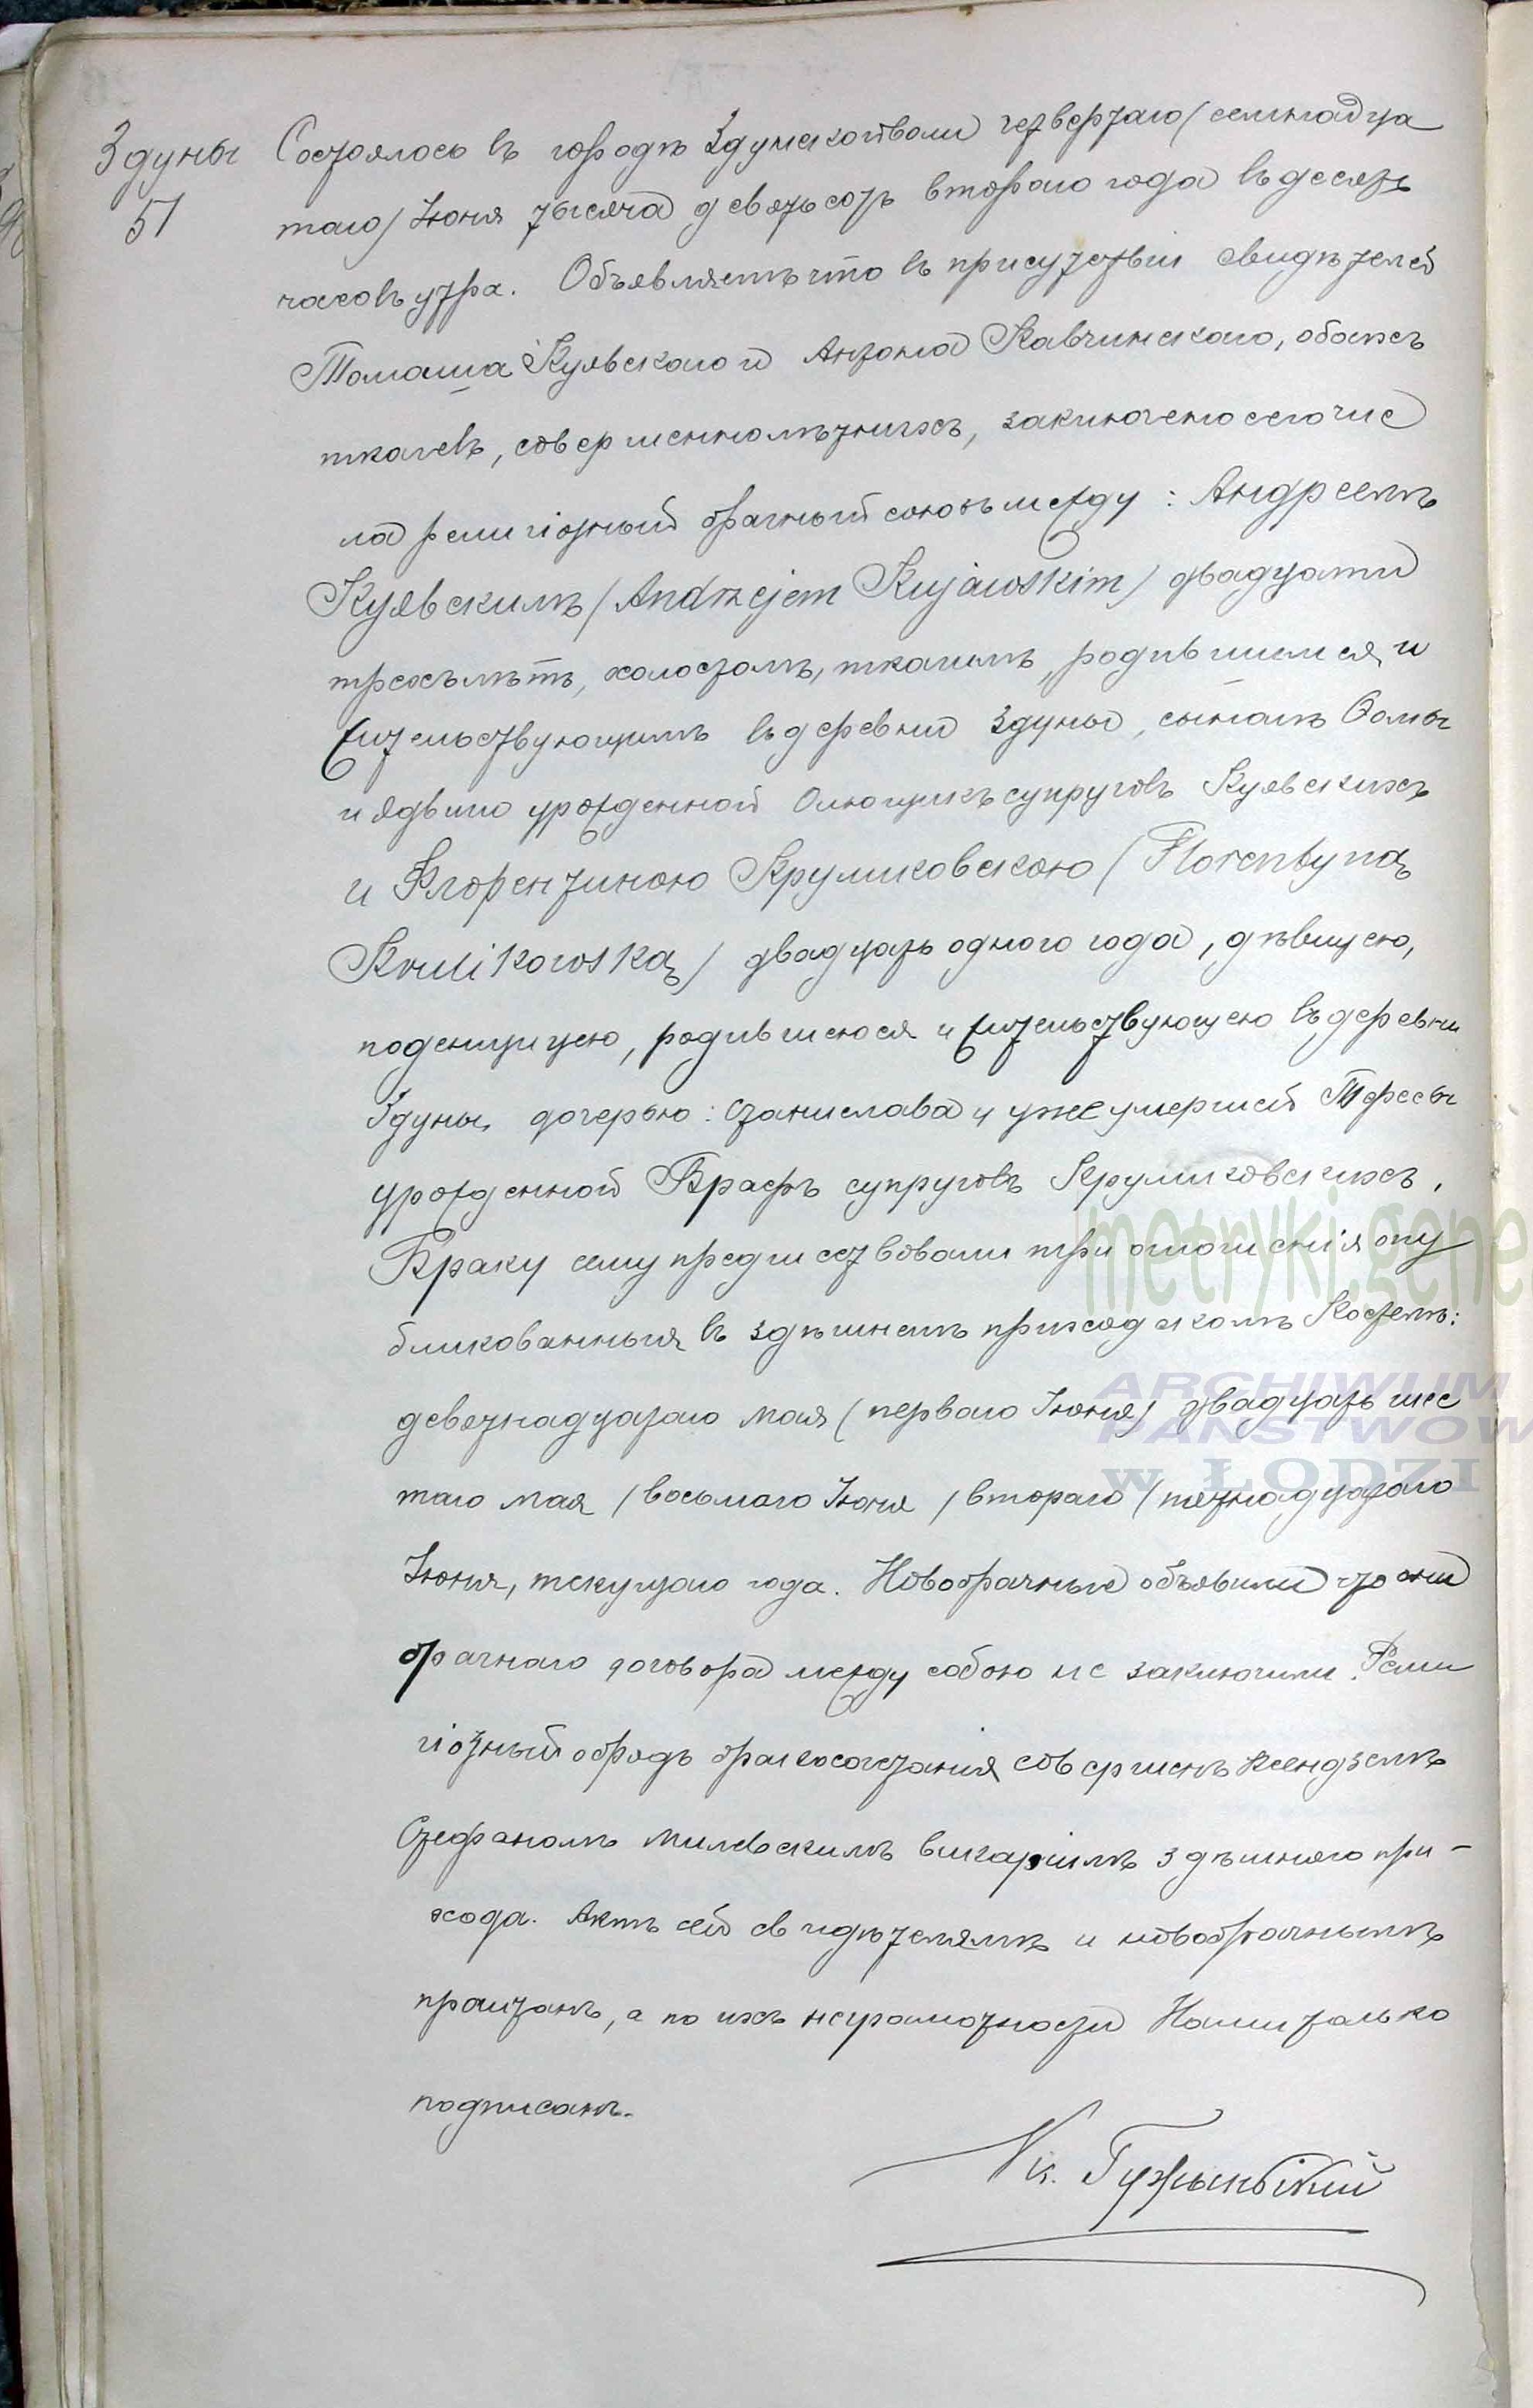 Здуны
51
Состоялось въ городѣ Здунскойволи четвертаго /семнадца
таго/ Іюня тысяча девятьсотъ второго года въ десять
часовъ утра. Объявляемъ что въ присутствіи свидѣтелей
Томаша Куявскаго и Антона Кавчинскаго, обоихъ
ткачевъ, совершеннолѣтнихъ, заключено сего чис
ла религіозный брачный союзъ между: Андреемъ
Куявскимъ /Andrzejem Kujawskim/ двадцати
трехълѣтъ, холостомъ, ткачемъ, родившимся и
жительствующимъ въ деревни Здуны, сыномъ Ѳомы
и Ядвиги урожденной Олющикъ супруговъ Куявскихъ
и Флорентиною Круликовскою /Florentyną
Krulikowską/ двадцать одного года, дѣвицею,
поденщицею, родившеюся и жительствующею въ деревни
Здуны, дочерью: Станислава и уже умершей Тересы
урожденной Врафъ супруговъ Круликовскихъ.
Браку сему предшествовали три оглашенія опу
бликованныя въ здѣшнемъ приходскомъ Костелѣ:
девятнадцатаго мая /перваго Іюня/ двадцать шес
таго мая /восьмаго Іюня/ втораго /пятнадцатаго
Іюня, текущаго года. Новобрачные объявили что они
брачнаго договора между собою не заключили. Рели
гіозный обрядъ бракосочетанія совершенъ Ксендземъ
Стефаномъ Милевскимъ викаріимъ здѣшняго при-
хода. Актъ сей свидѣтелямъ и новобрачнымъ
прочитанъ, а по ихъ неграмотности Нами только
подписанъ.
Кс.
metryki.gene
ARCHIWUM
PAŃSTWOW
w ŁODZI